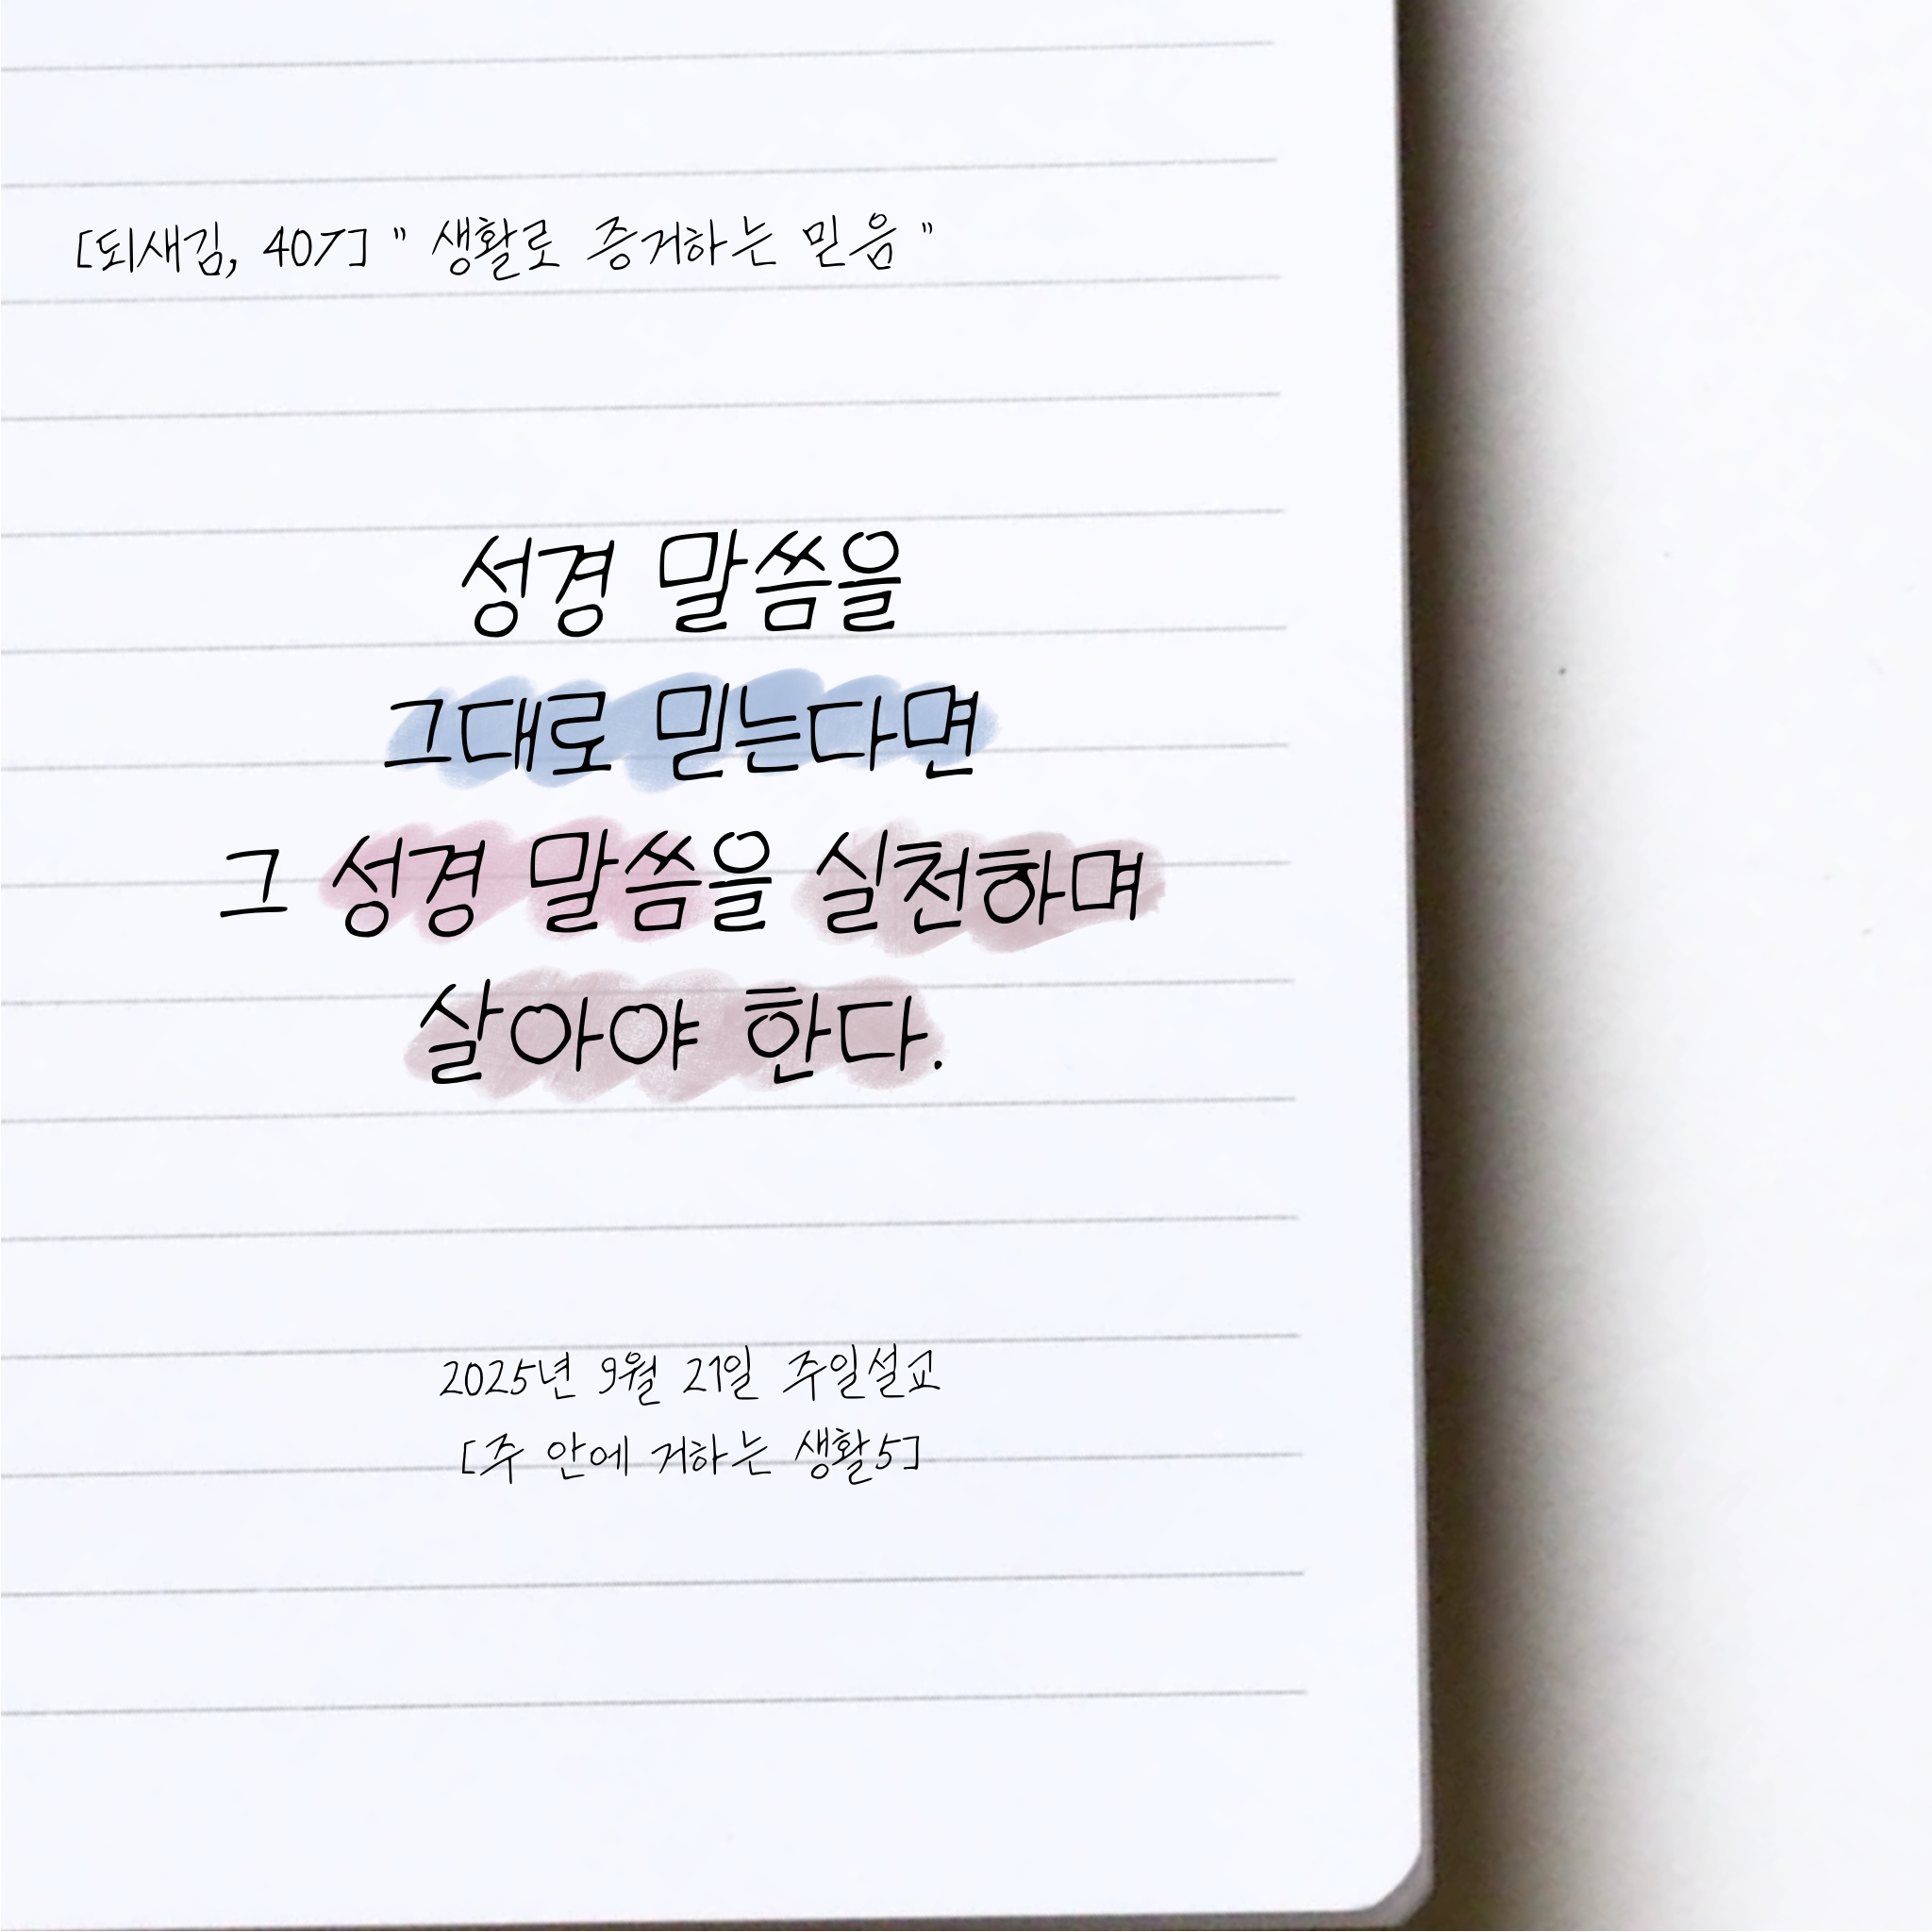 [되새김, 407] " 생활로 증거하는 믿음 "
성경 말씀을
그대로 믿는다면
그 성경 말씀을 실천하며
살아야 한다.
2025년 9월 21일 주일설교
[주 안에 거하는 생활5]